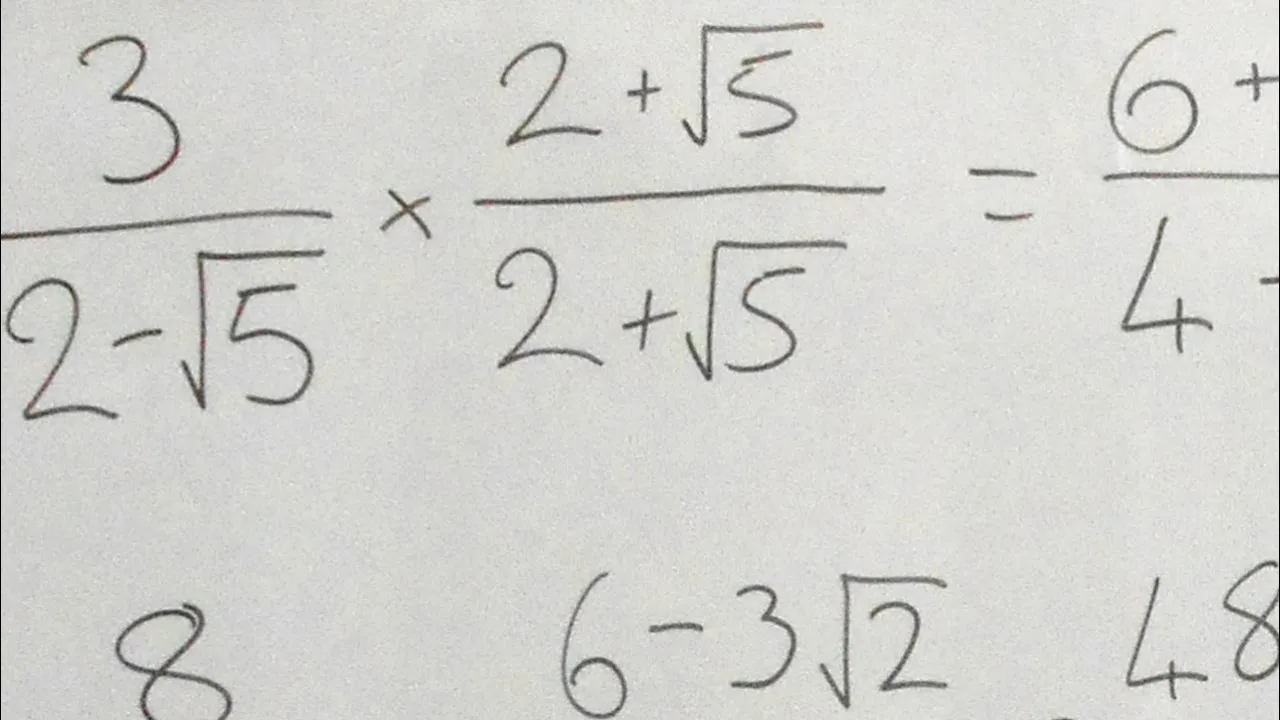 3 2 + √5 6 +
× =
2 - √5 2 + √5 4 -
8 6 - 3√2 48